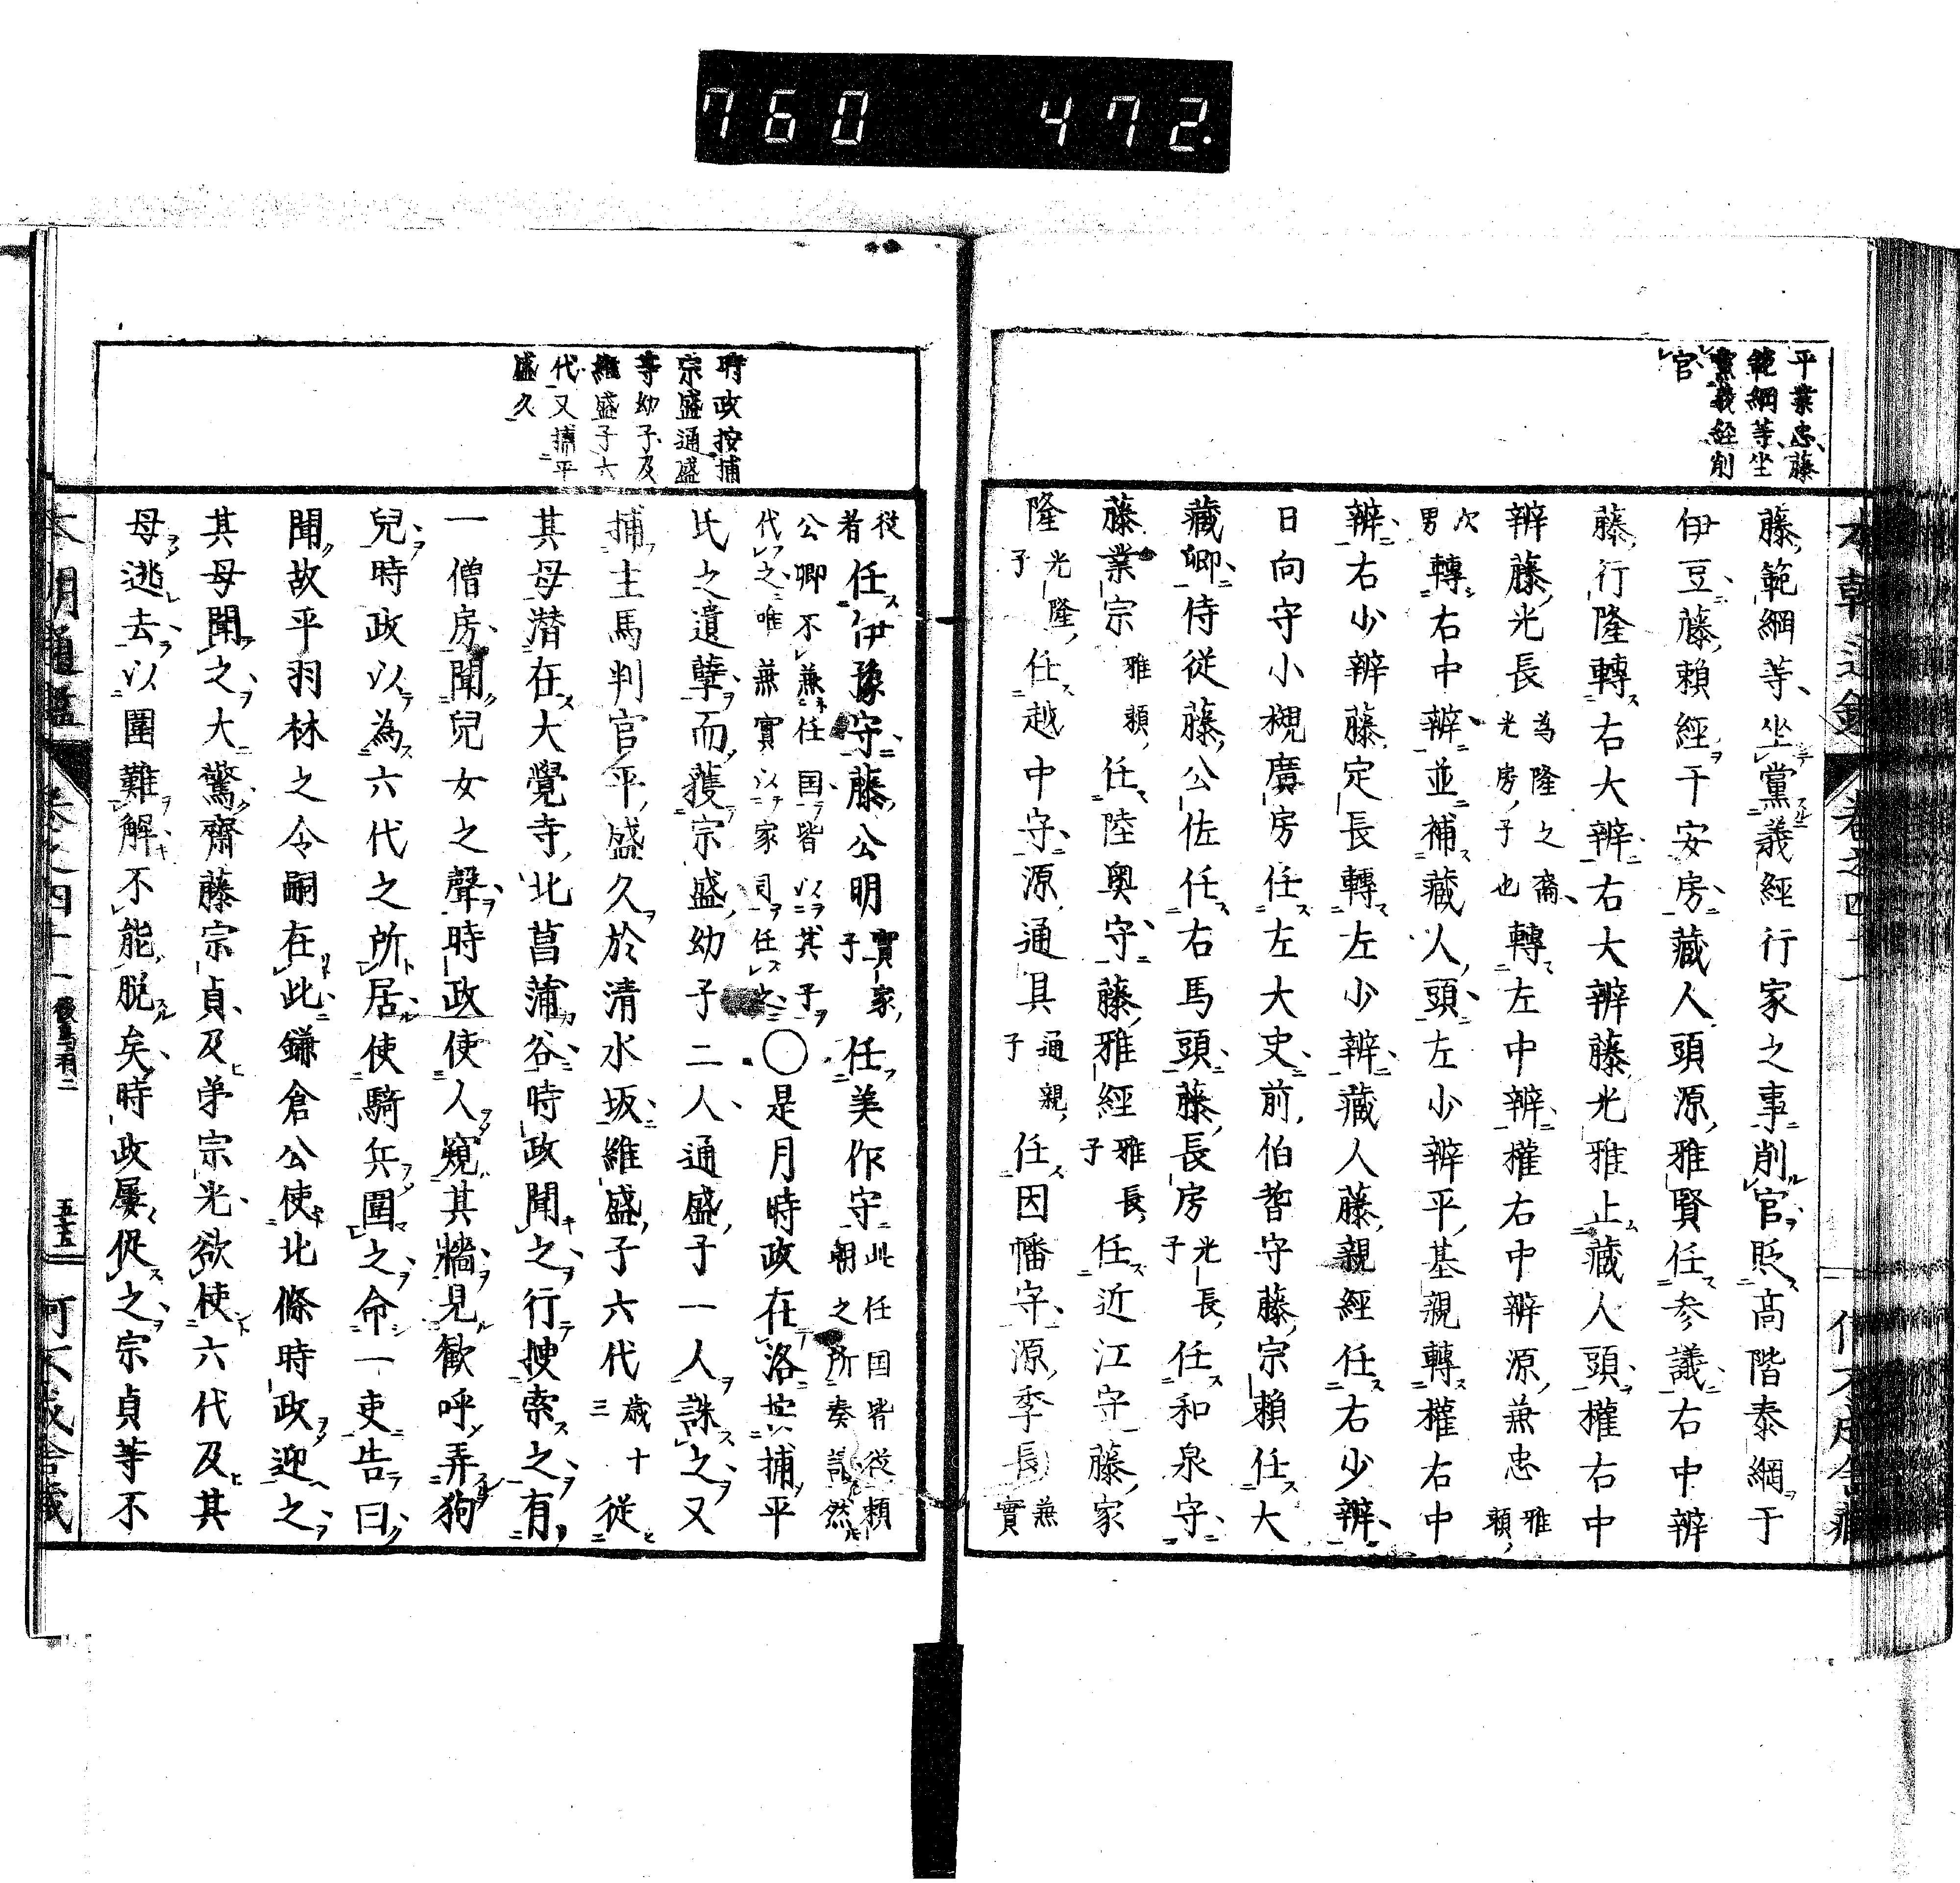 760 472.
平業忠藤
範綱等坐
黨義經削
官
藤範綱等坐黨義經行家之事削官貶高階泰綱于
伊豆藤賴經于安房藏人頭源雅賢任参議右中辨
藤行隆轉右大辨右大辨藤光雅止藏人頭權右中
辨藤光長為隆之裔光房子也轉左中辨權右中辨源兼忠雅賴
次男轉右中辨並補藏人頭左少辨平基親轉權右中
辨右少辨藤定長轉左少辨藏人藤親經任右少辨
日向守小槻廣房任左大史前伯耆守藤宗賴任大
藏卿侍従藤公佐任右馬頭藤長房光長子任和泉守
藤業宗雅賴任陸奧守藤雅經雅長子任近江守藤家
隆光隆子任越中守源通具通親子任因幡守源季長兼實
時政按捕
宗盛通盛
等幼子及
維盛子六
代又捕平
盛久
従者任伊豫守藤公明實家子任美作守此任国皆従賴朝之所奏請然
公卿不兼任国皆以其子代之唯兼實以家司任之○是月時政在洛按捕平
氏之遺孽而獲宗盛幼子二人通盛子一人誅之又
捕主馬判官平盛久於清水坂維盛子六代歲十三従
其母潜在大覺寺北菖蒲谷時政聞之行搜索之有
一僧房聞兒女之聲時政使人窺其牆見歡呼弄狗
兒時政以為六代之所居使騎兵圍之命一吏告曰
聞故平羽林之令嗣在此鎌倉公使北條時政迎之
其母聞之大驚齋藤宗貞及弟宗光欲使六代及其
母逃去以圍難解不能脱矣時政屢促之宗貞等不
本朝通鑑 卷之四十一 後鳥羽二 五十五